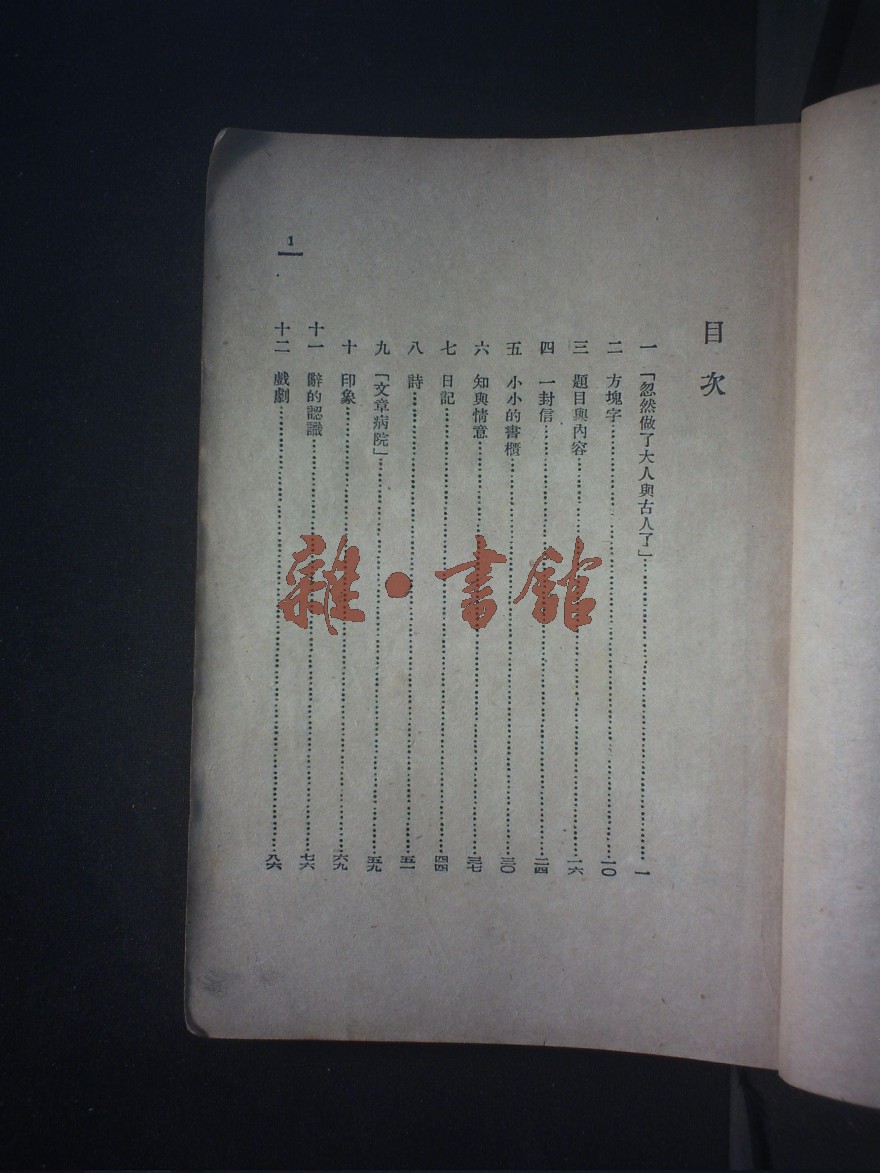 目次
一 「忽然做了大人與古人了」……一
二 方塊字……一〇
三 題目與內容……一六
四 一封信……二四
五 小小的書櫃……三〇
六 知與情意……三七
七 日記……四四
八 詩……五一
九 「文章病院」……五九
十 印象……六九
十一 辭的認識……七六
十二 戲劇……八六
1
雜·書館